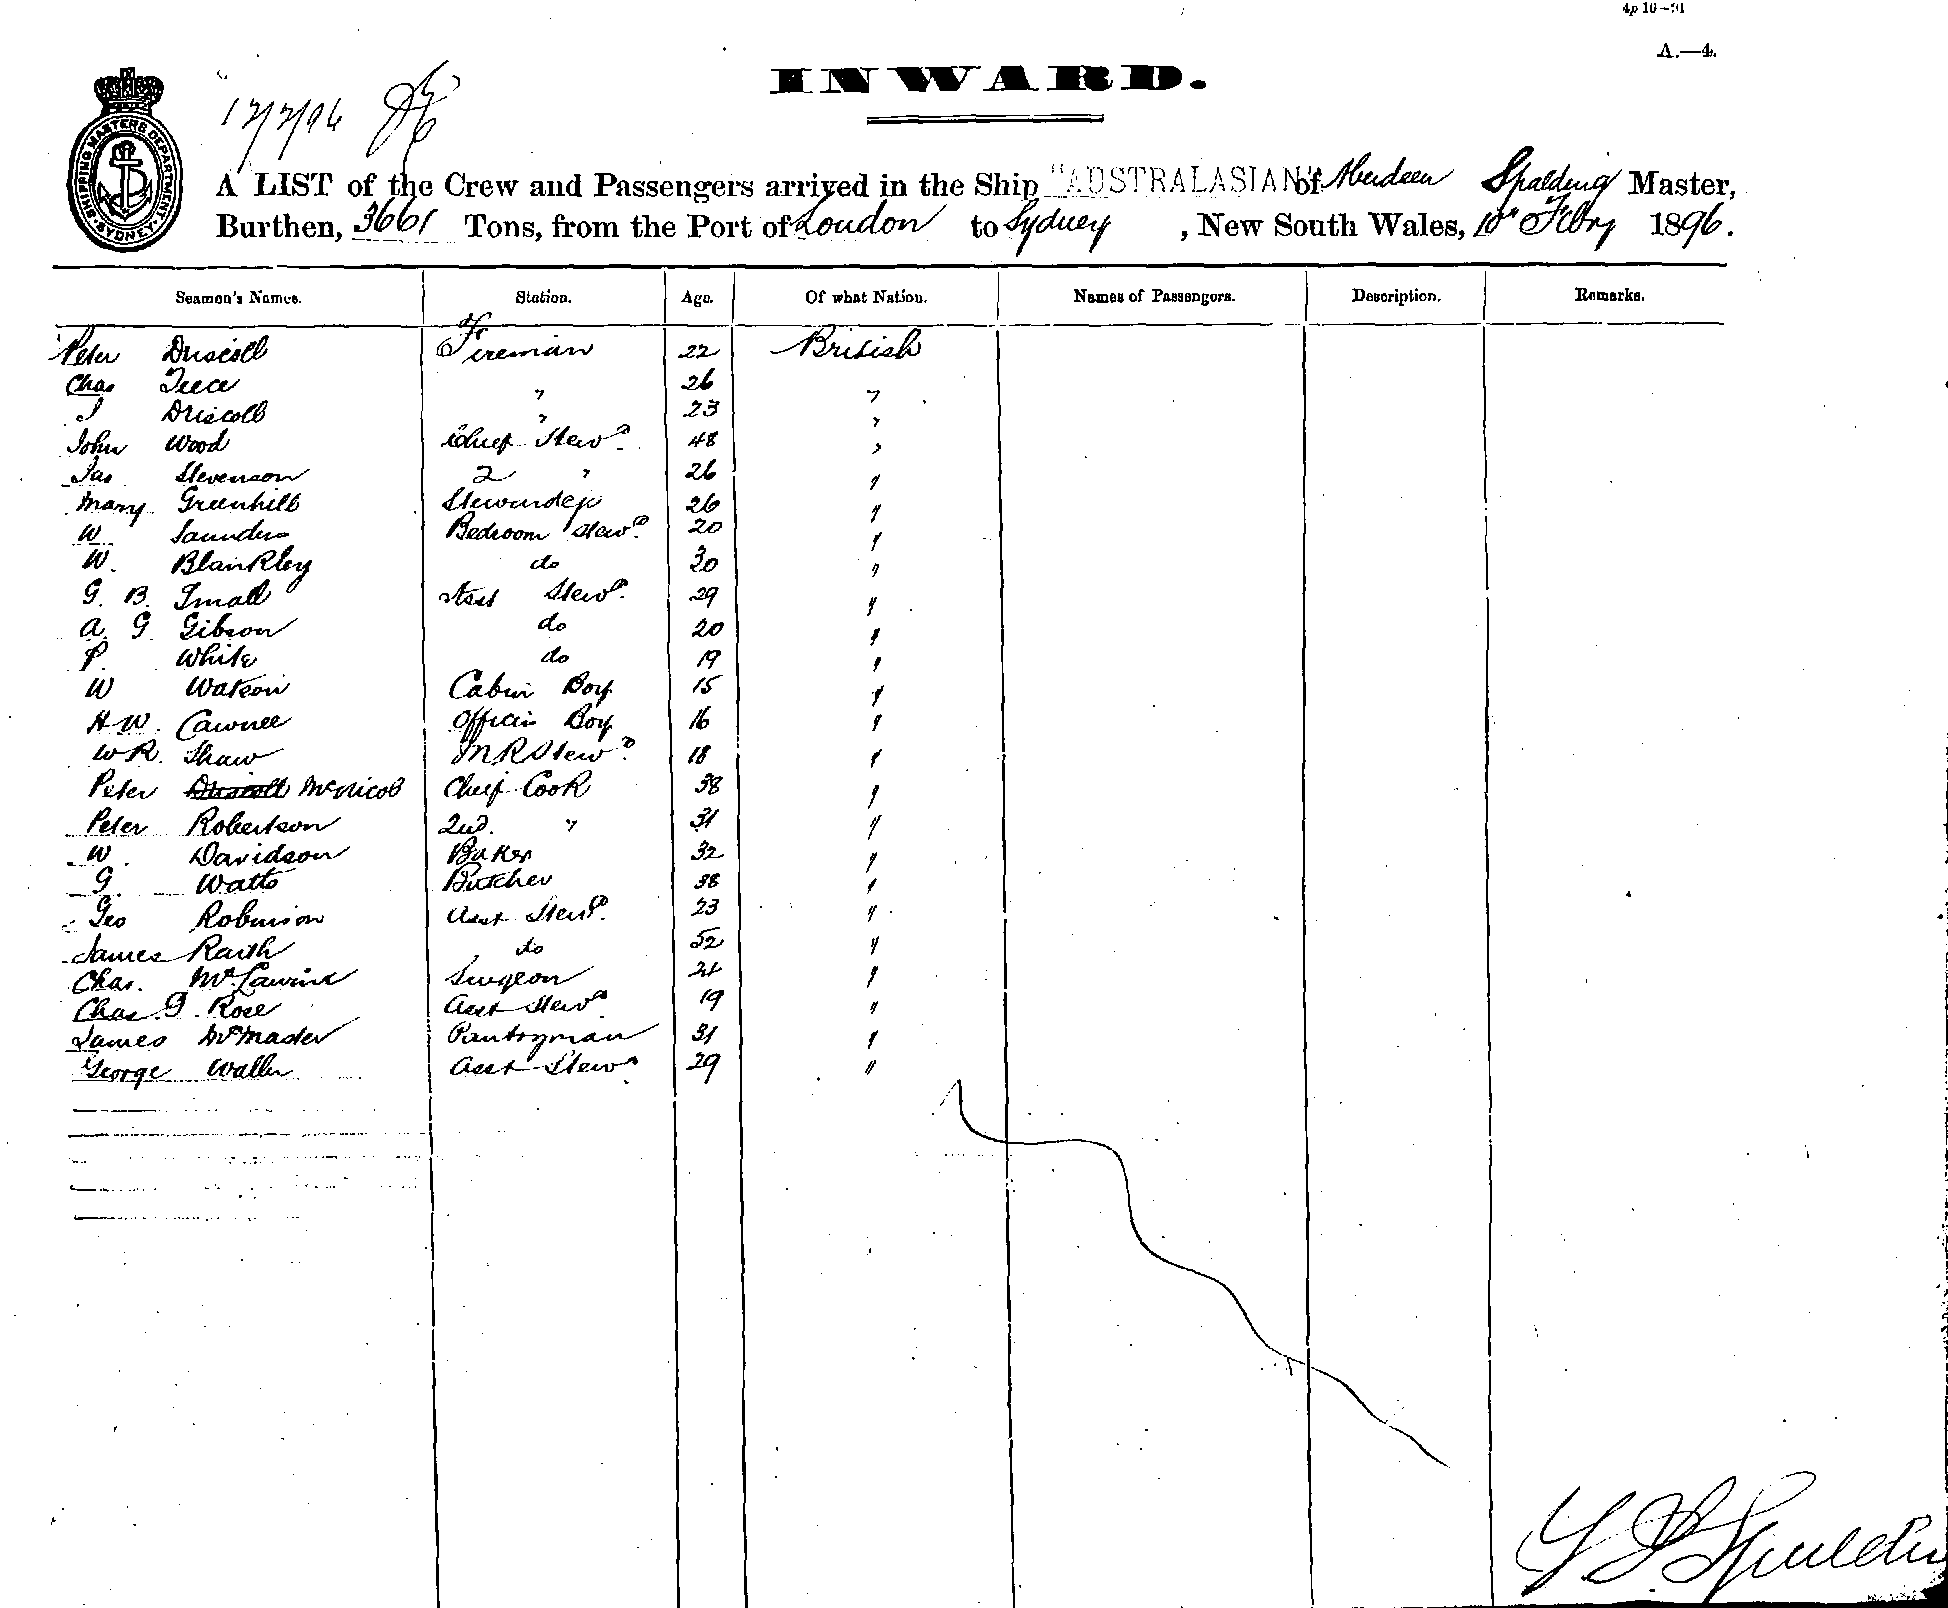 4p 10-91
A.—4.
INWARD.
SHIPPING MASTERS DEPARTMENT SYDNEY
A LIST of the Crew and Passengers arrived in the Ship "AUSTRALASIAN" of Aberdeen Spalding Master,
Burthen, 3661 Tons, from the Port of London to Sydney, New South Wales, 10th Febry 1896.
Seamen's Names. Station. Age. Of what Nation. Names of Passengers. Description. Remarks.
Peter Driscoll Fireman 22 British
Chas Teece " 26 "
J Driscoll " 23 "
John Wood Chief Stewd 48 "
Jas Stevenson 2 " 26 "
Mary Greenhill Stewardess 26 "
W Saunders Bedroom Stewd 20 "
W. Blankley do 30 "
G. B. Small Asst Stewd 29 "
A. G Gibson do 20 "
P. White do 19 "
W Watson Cabin Boy 15 "
H W. Officers Boy 16 "
W R. Shaw M R Stewd 18 "
Peter Driscoll McNicol Chief Cook 38 "
Peter Robertson 2nd. " 31 "
W. Davidson Baker 32 "
G. Watts Butcher 38 "
Geo Robinson Asst Stewd 23 "
James Raith do 52 "
Chas. Surgeon "
Chas. G. Rose Asst Stewd 19 "
James McMaster Pantryman 31 "
George Waller Asst Stewd 29 "